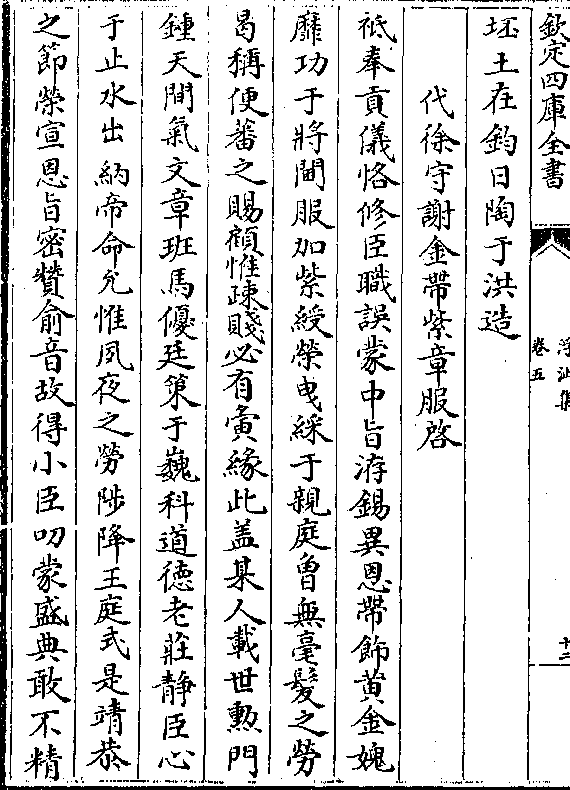 欽定四庫全書
浮沚集
卷五
十二
坯土在鈞日陶于洪造
代徐守謝金帶紫章服啓
祗奉貢儀恪修臣職誤蒙中旨洊錫異恩帶飾黄金媿
靡功于將閫服加紫綬榮曳綵于親庭曾無毫髮之勞
曷稱便蕃之賜顧惟疎賤必有夤緣此盖某人載世勲門
鍾天間氣文章班馬優廷䇿于巍科道德老莊静臣心
于止水出納帝命允惟夙夜之勞陟降王庭式是靖恭
之節榮宣恩旨密贊俞音故得小臣叨蒙盛典敢不精